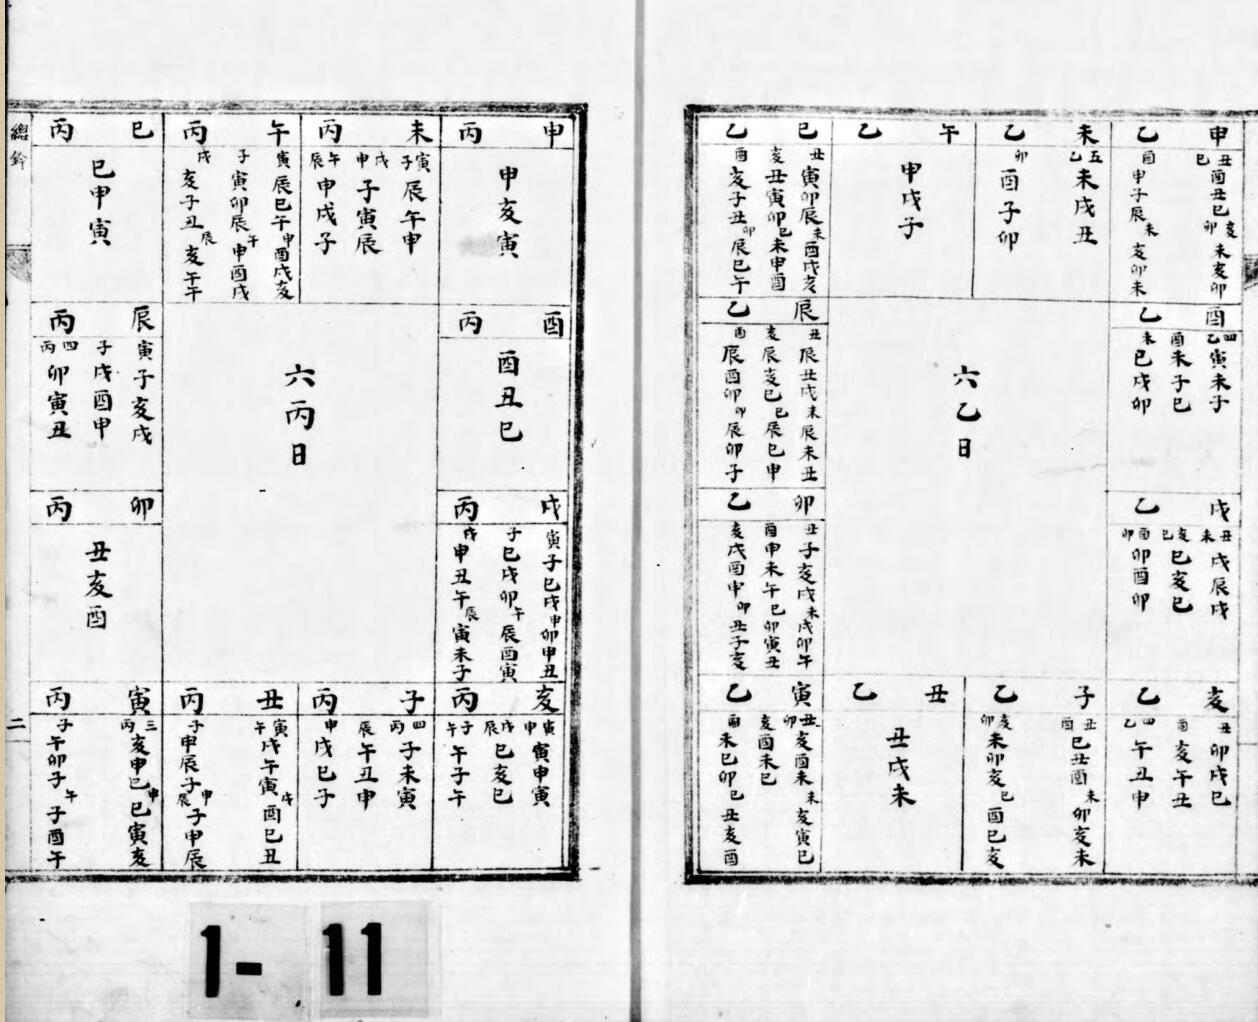 申 乙
丑巳 酉丑巳 亥卯 未亥卯
酉 申子辰 未 亥卯未
未 乙
五乙 未戌丑
卯 酉子卯
午 乙
甲戌子
巳 乙
丑 寅卯辰 未 酉戌亥
亥丑寅卯 巳 未申酉
酉 亥子丑 卯 辰巳午
酉 乙
四乙 寅未子
酉 未子巳
未 巳戌卯
六乙日
辰 乙
丑 辰丑戌 未 辰未丑
亥 辰亥巳 巳 辰巳申
酉 辰酉卯 卯 辰卯子
戌 乙
丑未 戌辰戌
亥巳 巳亥巳
酉卯 卯酉卯
卯 乙
丑 子亥戌 未 戌卯午
酉 申未午 巳 卯寅丑
亥 戌酉申 卯 丑子亥
亥 乙
丑 卯戌巳
酉 亥午丑
四乙 午丑申
子 乙
丑酉 巳丑酉 未 卯亥未
亥卯 未卯亥 巳 酉巳亥
丑 乙
丑戌未
寅 乙
丑卯 亥酉未 未 亥寅巳
亥 酉未巳
酉 未巳卯 巳丑亥酉
申 丙
申亥寅
未 丙
寅子 辰午申
戌申 子寅辰
午辰 申戌子
午 丙
寅 辰巳午 申 酉戌亥
子 寅卯辰 午 申酉戌
戌 亥子丑 辰 亥午午
巳 丙
巳申寅
總鈐
酉 丙
酉丑巳
六丙日
辰 丙
寅 子亥戌
子 戌酉申
四丙 卯寅丑
戌 丙
寅 子巳戌 申 卯申丑
子 巳戌卯 午 辰酉寅
戌 申丑午 辰 寅未子
卯 丙
丑亥酉
亥 丙
寅申 寅申寅
戌辰 巳亥巳
子午 午子午
子 丙
四丙 子未寅
辰 午丑申
申 戌巳子
丑 丙
寅午 戌午寅 戌 酉巳丑
子 申辰子 申辰 子申辰
寅 丙
三丙 亥申巳 申 巳寅亥
子 午卯子 午 子酉午
二
1-11